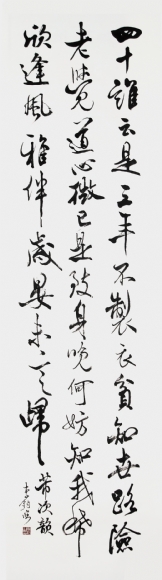 四十誰云是三年不製衣貧知世路險
老覺道心微已是致身晚何妨知我稀
欣逢風雅伴歲晏未言歸